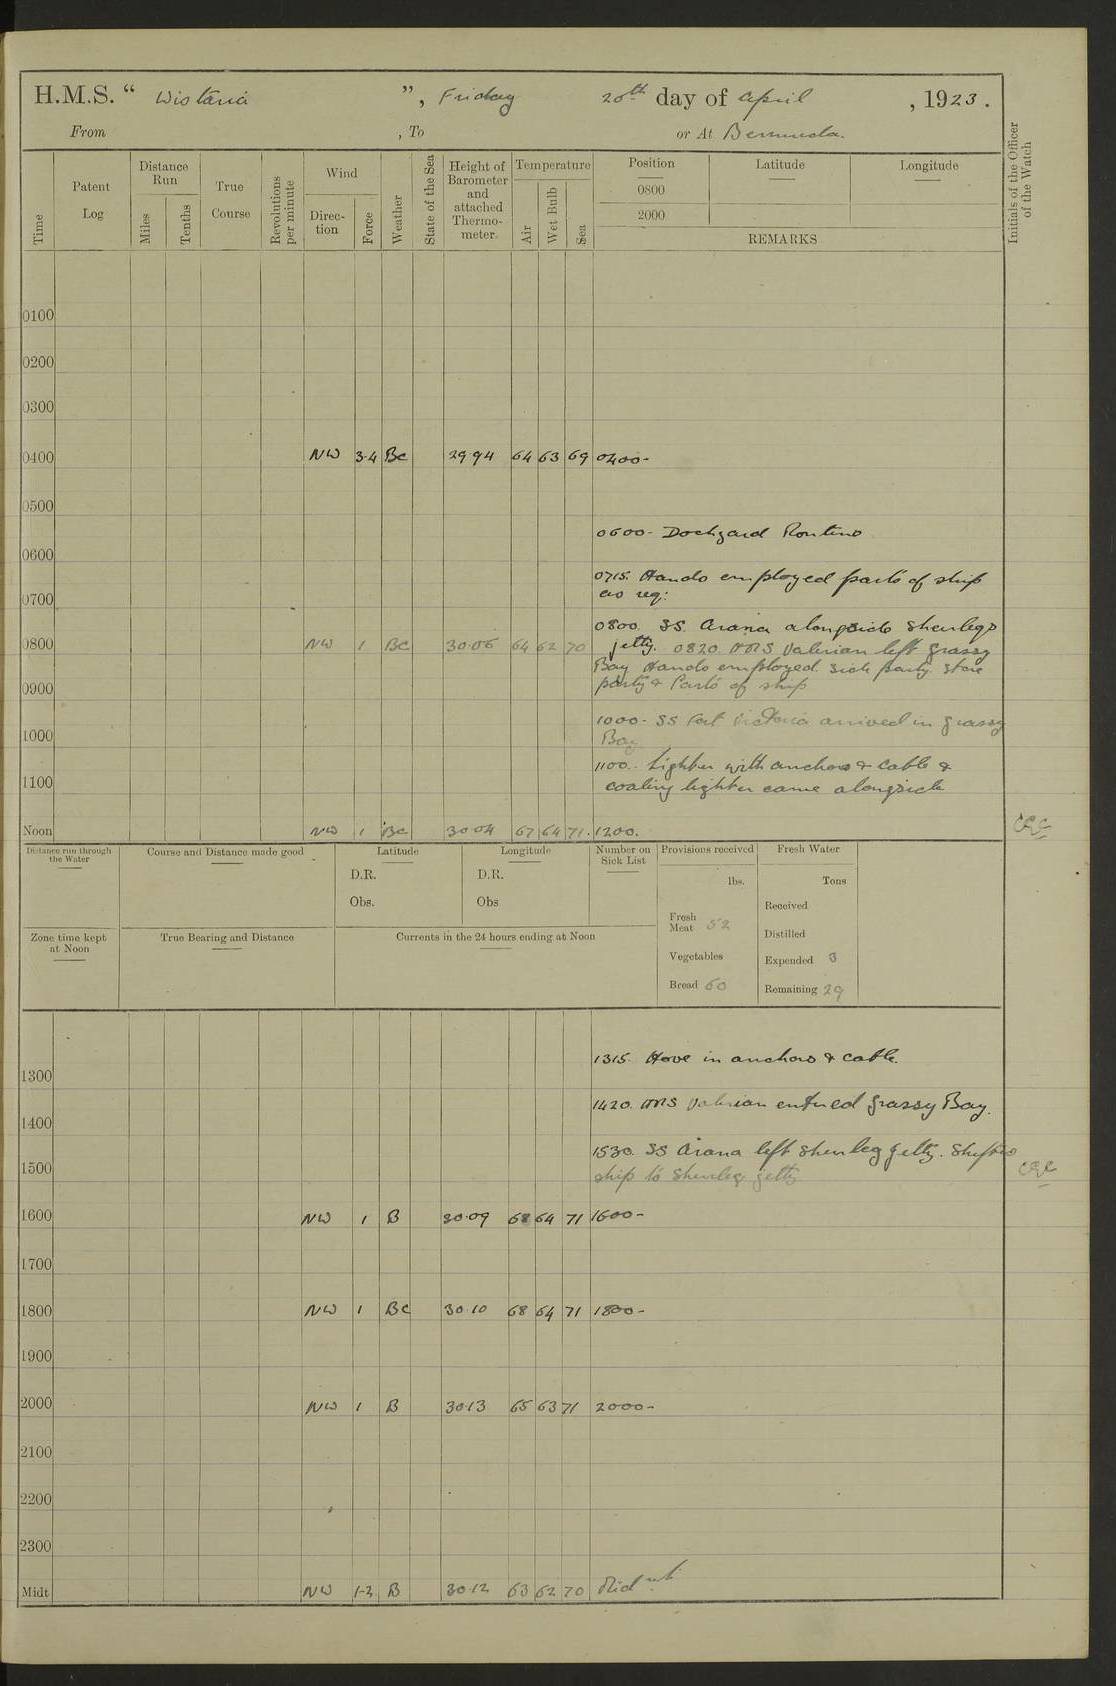 H.M.S. “ Wistaria ”, Friday 20th day of April, 1923.
From , To or At Bermuda.
Time
Patent Log
Distance Run
Miles
Tenths
True Course
Revolutions per minute
Wind
Direc-tion
Force
Weather
State of the Sea
Height of Barometer and attached Thermo-meter.
Temperature
Air
Wet Bulb
Sea
Position
Latitude
Longitude
0800
2000
REMARKS
Initials of the Officer of the Watch
0100
0200
0300
0400 NW 3-4 Bc 29 94 64 63 69 0400-
0500
0600- Dockyard Routine
0600
0715. Hands employed parts of ship
as req:
0700
0800. SS. Arana alongside Shearlegs
0800 NW 1 BC 30.06 64 62 70 jetty. 0820. HMS Valerian left Grassy
Bay Hands employed. sick party. store
party & Parts of ship
0900
1000- SS Fort Victoria arrived in Grassy
Bay
1000
1100. Lighter with anchors & cable &
coaling lighter came alongside
1100
Noon NW 1 Bc 30 04 67 64 71. 1200.
Distance run through the Water
Course and Distance made good
Latitude
D.R.
Obs.
Longitude
D.R.
Obs
Number on Sick List
Provisions received
lbs.
Fresh Meat 52
Vegetables
Bread 60
Fresh Water
Tons
Received
Distilled
Expended 3
Remaining 29
Zone time kept at Noon
True Bearing and Distance
Currents in the 24 hours ending at Noon
1315. Hove in anchors & cable.
1300
1420. HMS Valerian entered Grassy Bay.
1400
1530. SS Arana left Shearleg jetty. Shifted
ship to Shearleg jetty
1500
1600 NW 1 B 30.09 68 64 71 1600-
1700
1800 NW 1 BC 30 10 68 64 71 1800-
1900
2000 NW 1 B 30.13 65 63 71 2000-
2100
2200
2300
Midt NW 1-2 B 30.12 63 62 70 Midnt.